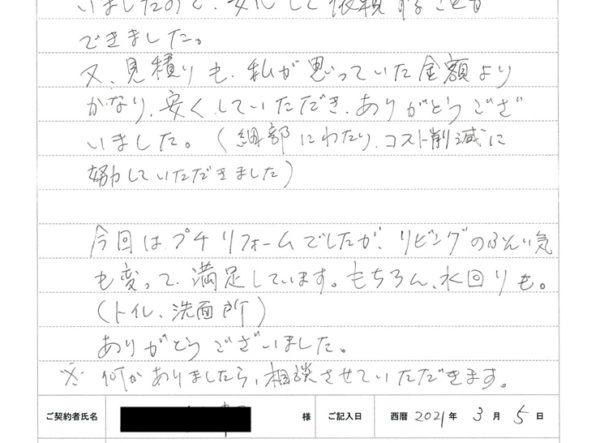 いましたので、安心して依頼することが
できました。
又、見積りも、私が思っていた金額より
かなり、安くしていただき、ありがとうござ
いました。(細部にわたり、コスト削減に
努力していただきました)
今回は、プチリフォームでしたが、リビングのふんい気
も変って、満足しています。もちろん、水回りも。
(トイレ、洗面所)
ありがとうございました。
※ 何かありましたら、相談させていただきます。
ご契約者氏名 様 ご記入日 西暦 2021 年 3 月 5 日